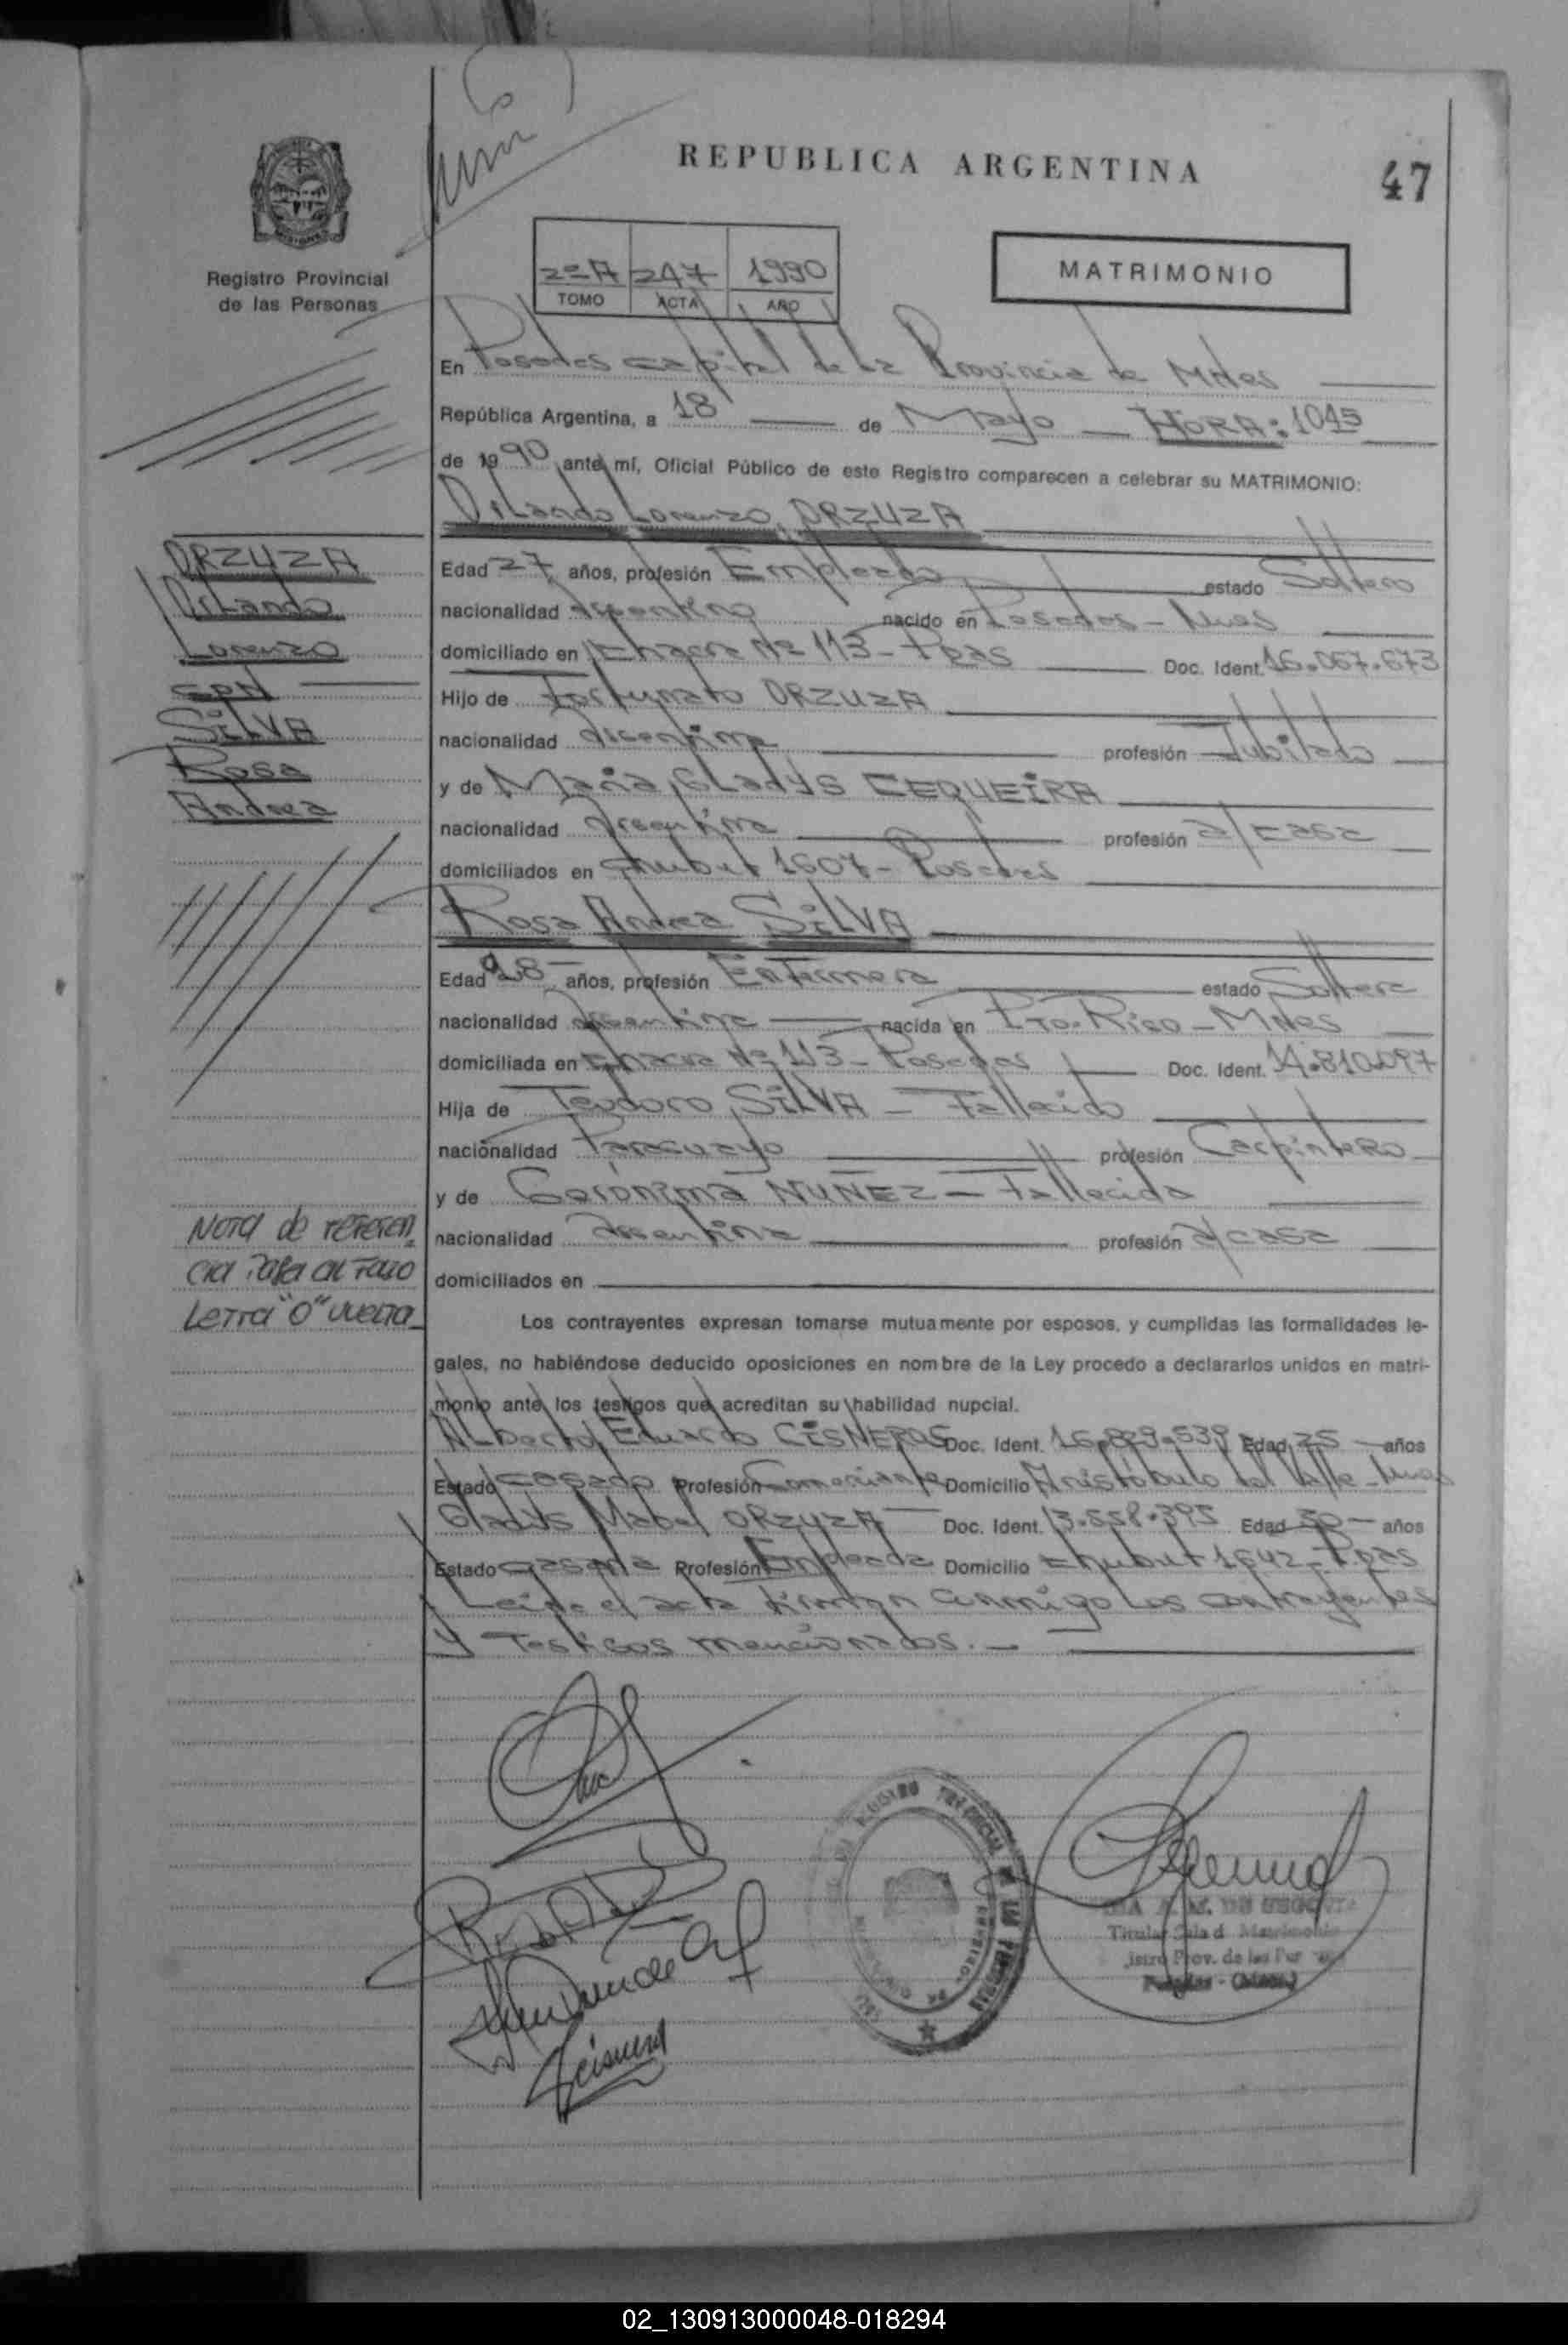 REPUBLICA ARGENTINA
47
Registro Provincial
de las Personas
2º A 247 1990
TOMO ACTA AÑO
MATRIMONIO
En Posadas capital de la Provincia de Mnes
República Argentina, a 18 de Mayo HORA: 1045
de 1990 ante mí, Oficial Público de este Registro comparecen a celebrar su MATRIMONIO:
Orlando Lorenzo, ORZUZA
ORZUZA
Orlando
Lorenzo
CON
SILVA
Rosa
Andrea
Edad 27 años, profesión Empleado estado Soltero
nacionalidad Argentino nacido en Posadas - Mnes
domiciliado en Chacra Nº 113 - Pdas Doc. Ident. 16.067.673
Hijo de Fortunato ORZUZA
nacionalidad Argentina profesión Jubilado
y de Maria Gladys CEQUEIRA
nacionalidad Argentina profesión a/casa
domiciliados en Chubut 1607 - Posadas
Rosa Andrea SILVA
Edad 28 años, profesión Enfermera estado Soltera
nacionalidad Argentina nacida en Pto. Rico - Mnes
domiciliada en Chacra Nº 113 - Posadas Doc. Ident. 14.810.097
Hija de Teodoro SILVA - Fallecido
nacionalidad Paraguayo profesión Carpintero
y de Gerónima NUÑEZ - Fallecida
nacionalidad Argentina profesión a/casa
domiciliados en
Nota de referen
cia pasa al Folio
Letra "O" vuelta
Los contrayentes expresan tomarse mutuamente por esposos, y cumplidas las formalidades le-
gales, no habiéndose deducido oposiciones en nombre de la Ley procedo a declararlos unidos en matri-
monio ante los testigos que acreditan su habilidad nupcial.
Alberto Eduardo CISNEROS Doc. Ident. 16.829.539 Edad 25 años
Estado Casado Profesión Comerciante Domicilio Aristóbulo del Valle - Mnes
Gladys Mabel ORZUZA Doc. Ident. 13.558.395 Edad 30 años
Estado Casada Profesión Empleada Domicilio Chubut 1642 - Pdas
Leída el acta firman conmigo los contrayentes
y Testigos mencionados.
REGISTRO PROVINCIAL DE LAS PERSONAS
Titular Sala d Matrimonio
istro Prov. de las Per
Posadas - (Mnes.)
02_130913000048-018294